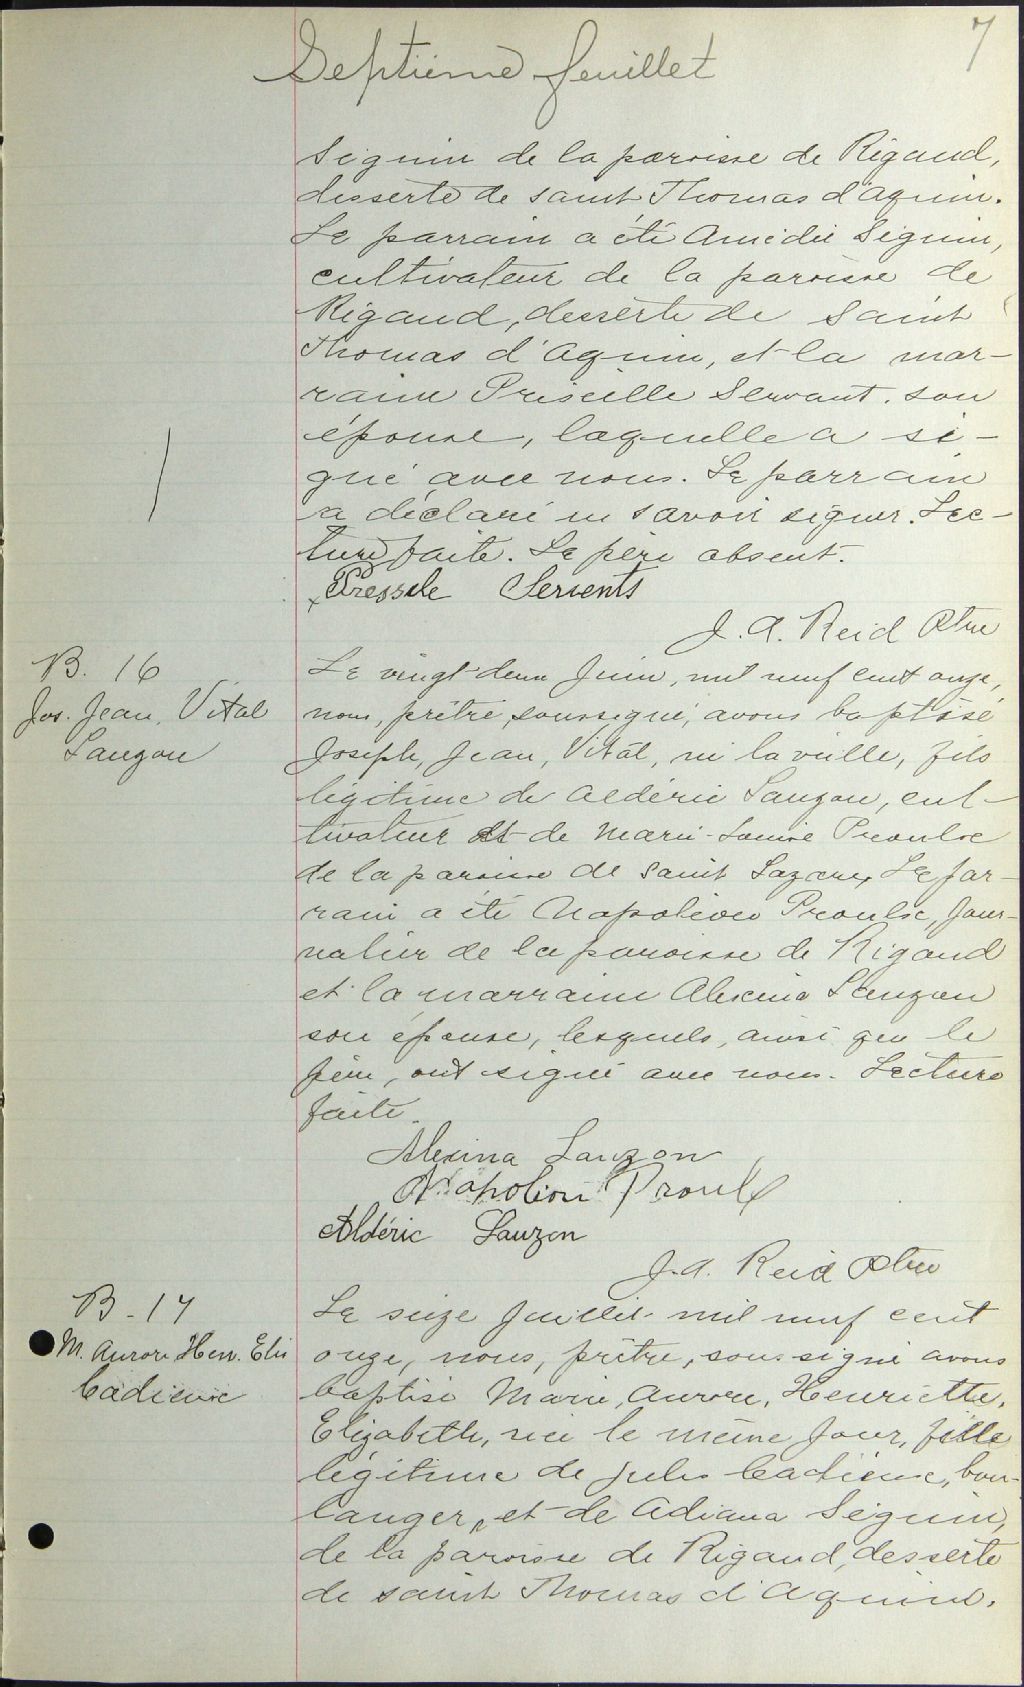 7
Septième feuillet
Séguin de la paroisse de Rigaud,
desserte de saint Thomas d'Aquin.
Le parrain a été Amédée Séguin,
cultivateur de la paroisse de
Rigaud, desserte de Saint
Thomas d'Aquin, et la mar-
raine Priscille Servant, son
épouse, laquelle a si-
gné avec nous. Le parrain
a déclaré ne savoir signer. Lec-
ture faite. Le père absent.
Pressile Servents
J. A. Reid Ptre
B. 16
Jos. Jean, Vital
Lauzon
Le vingt deux Juin, mil neuf cent onze,
nous, prêtre soussigné, avons baptisé
Joseph, Jean, Vital, né la veille, fils
légitime de Aldéric Lauzon, cul-
tivateur et de Marie-Louise Proulx
de la paroisse de saint Lazare. Le par-
rain a été Napoléon Proulx, jour-
nalier de la paroisse de Rigaud
et la marraine Alexina Lauzon
son épouse, lesquels, ainsi que le
père, ont signé avec nous. Lecture
faite.
Alexina Lauzon
Napoléon Proulx
Aldéric Lauzon
J. A. Reid Ptre
B. 17
M. Aurore Hen. Elis
Cadieux
Le seize Juillet mil neuf cent
onze, nous, prêtre, soussigné avons
baptisé Marie, Aurore, Henriette,
Elizabeth, née le même jour, fille
légitime de Jules Cadieux, bou-
langer, et de Adiana Séguin,
de la paroisse de Rigaud, desserte
de saint Thomas d'Aquin.